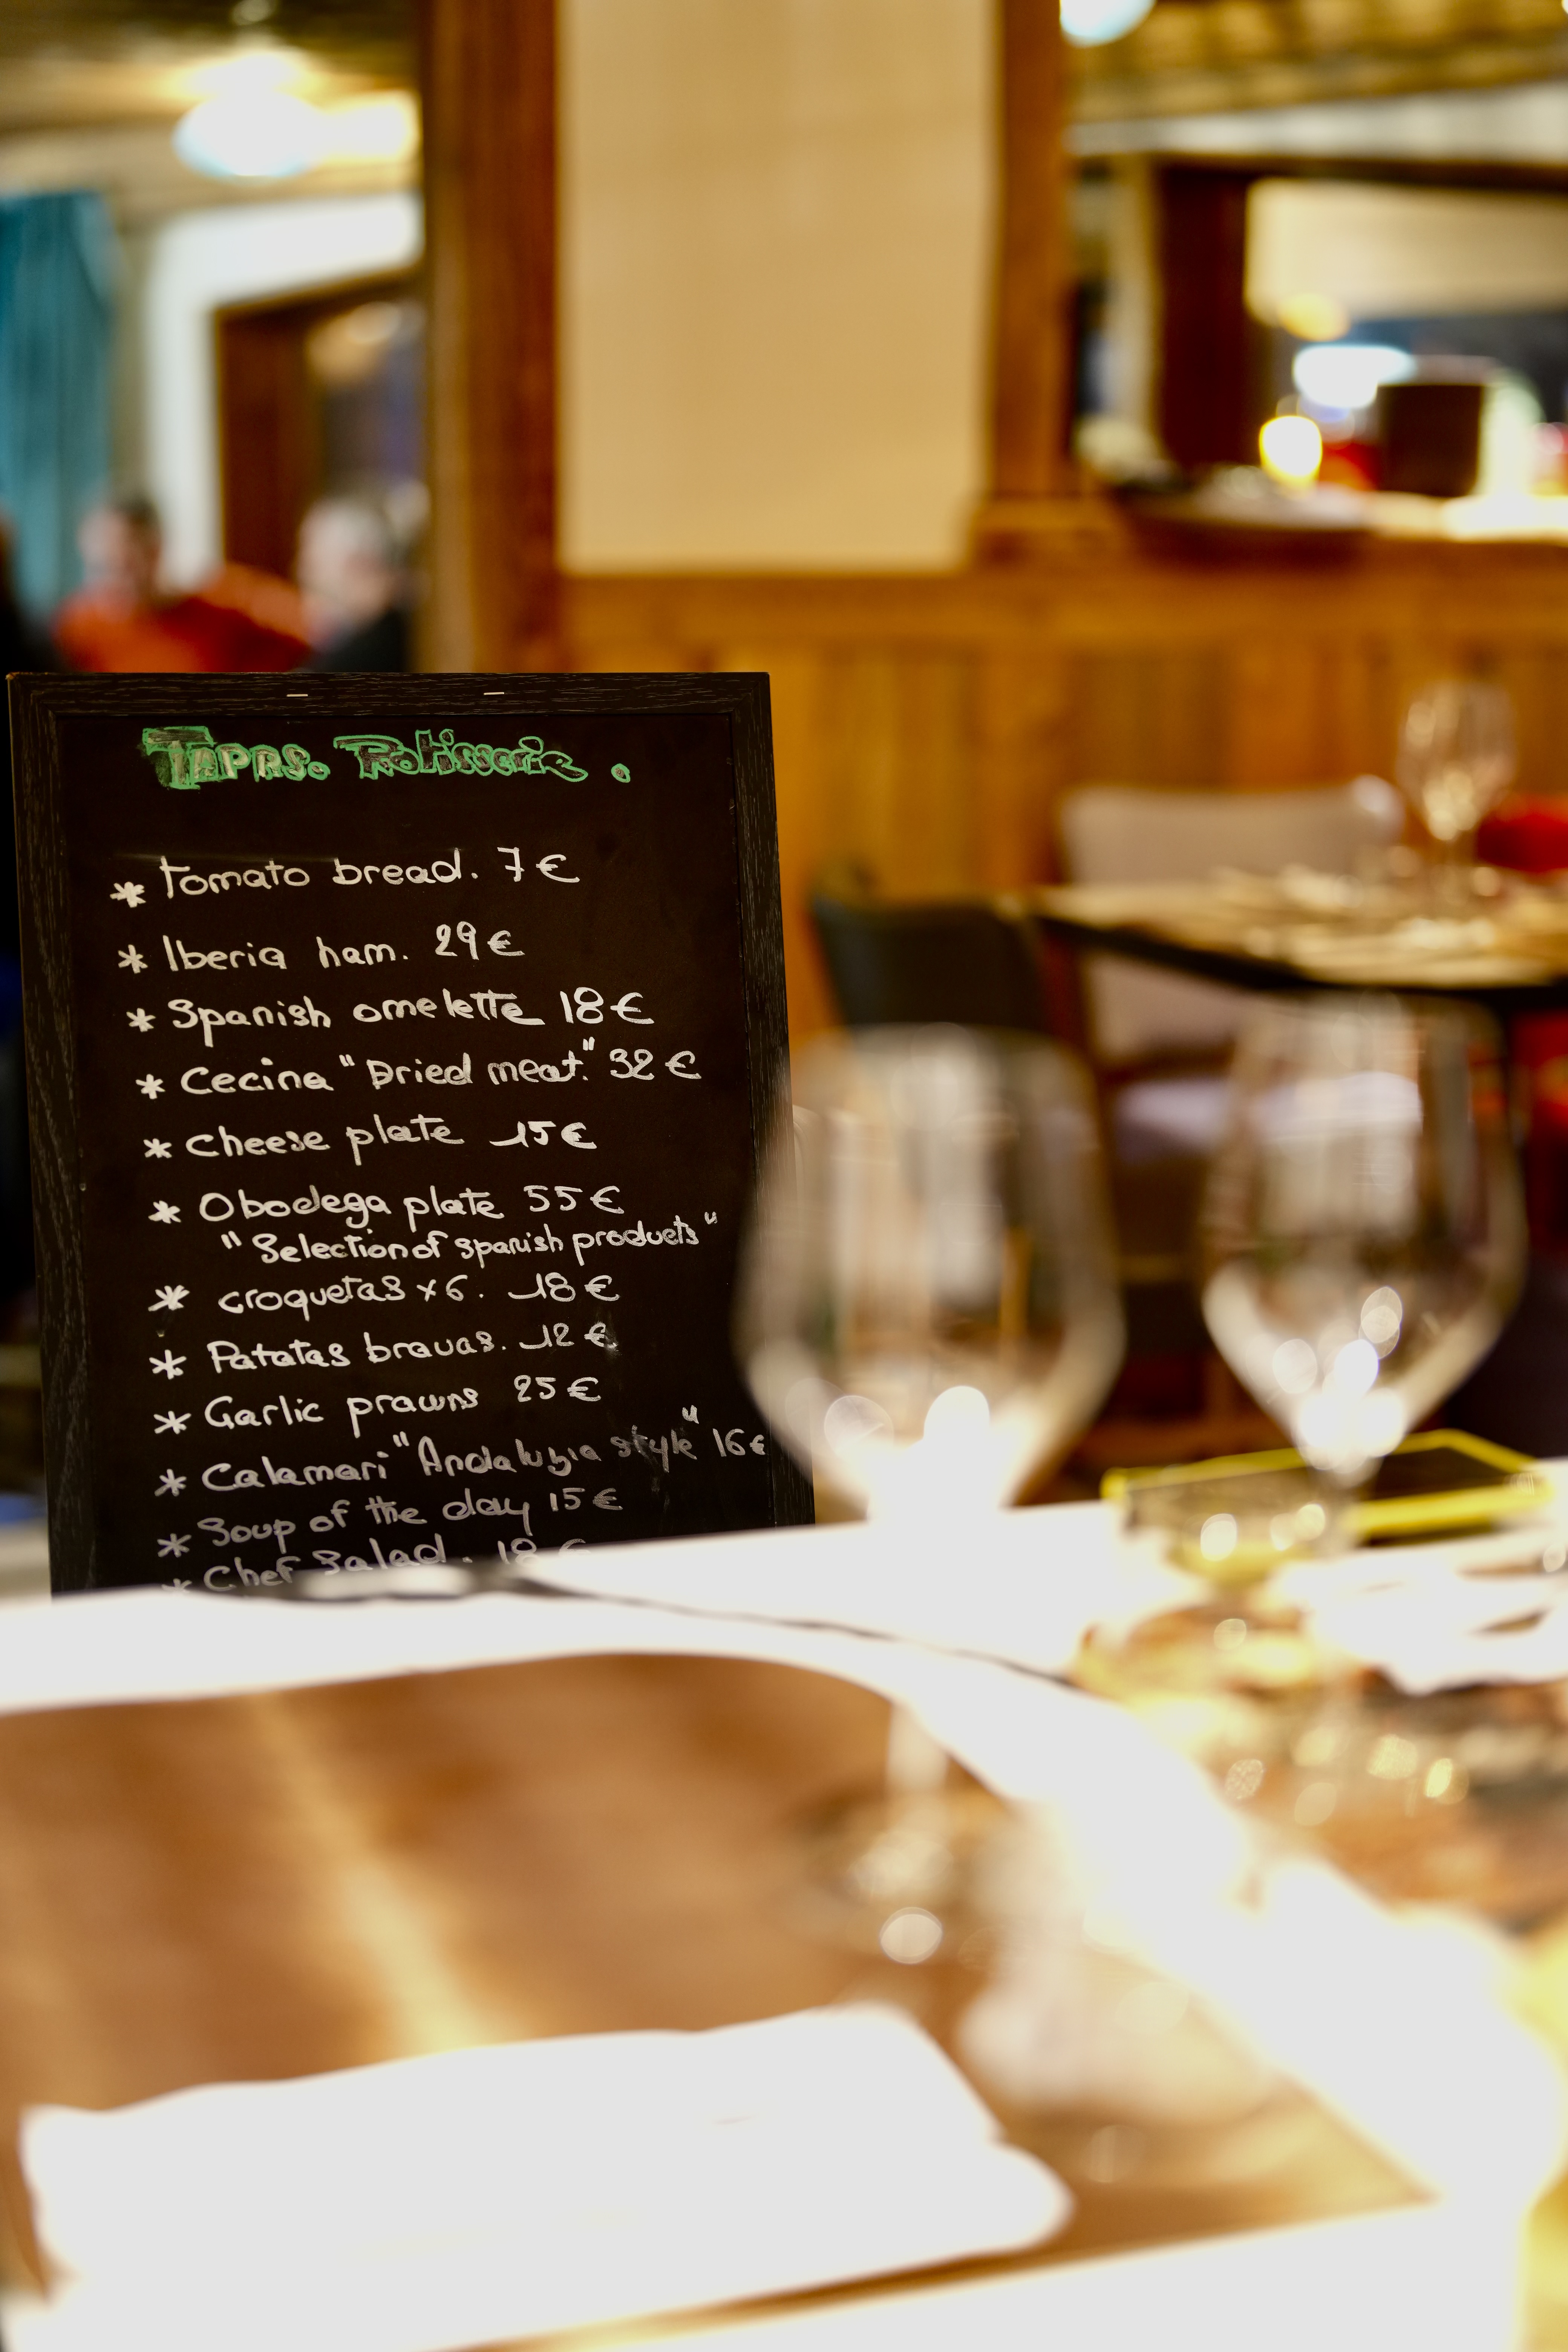 TAPAS. Rotisserie.
* Tomato bread. 7€
* Iberia ham. 29€
* Spanish omelette 18€
* Cecina "Dried meat." 32€
* Cheese plate 15€
* Obodega plate 55€
"Selection of spanish products"
* croquetas x6. 18€
* Patatas bravas. 12€
* Garlic prawns 25€
* Calamari "Andaluzia style" 16€
* Soup of the day 15€
* Chef Salad. 18€